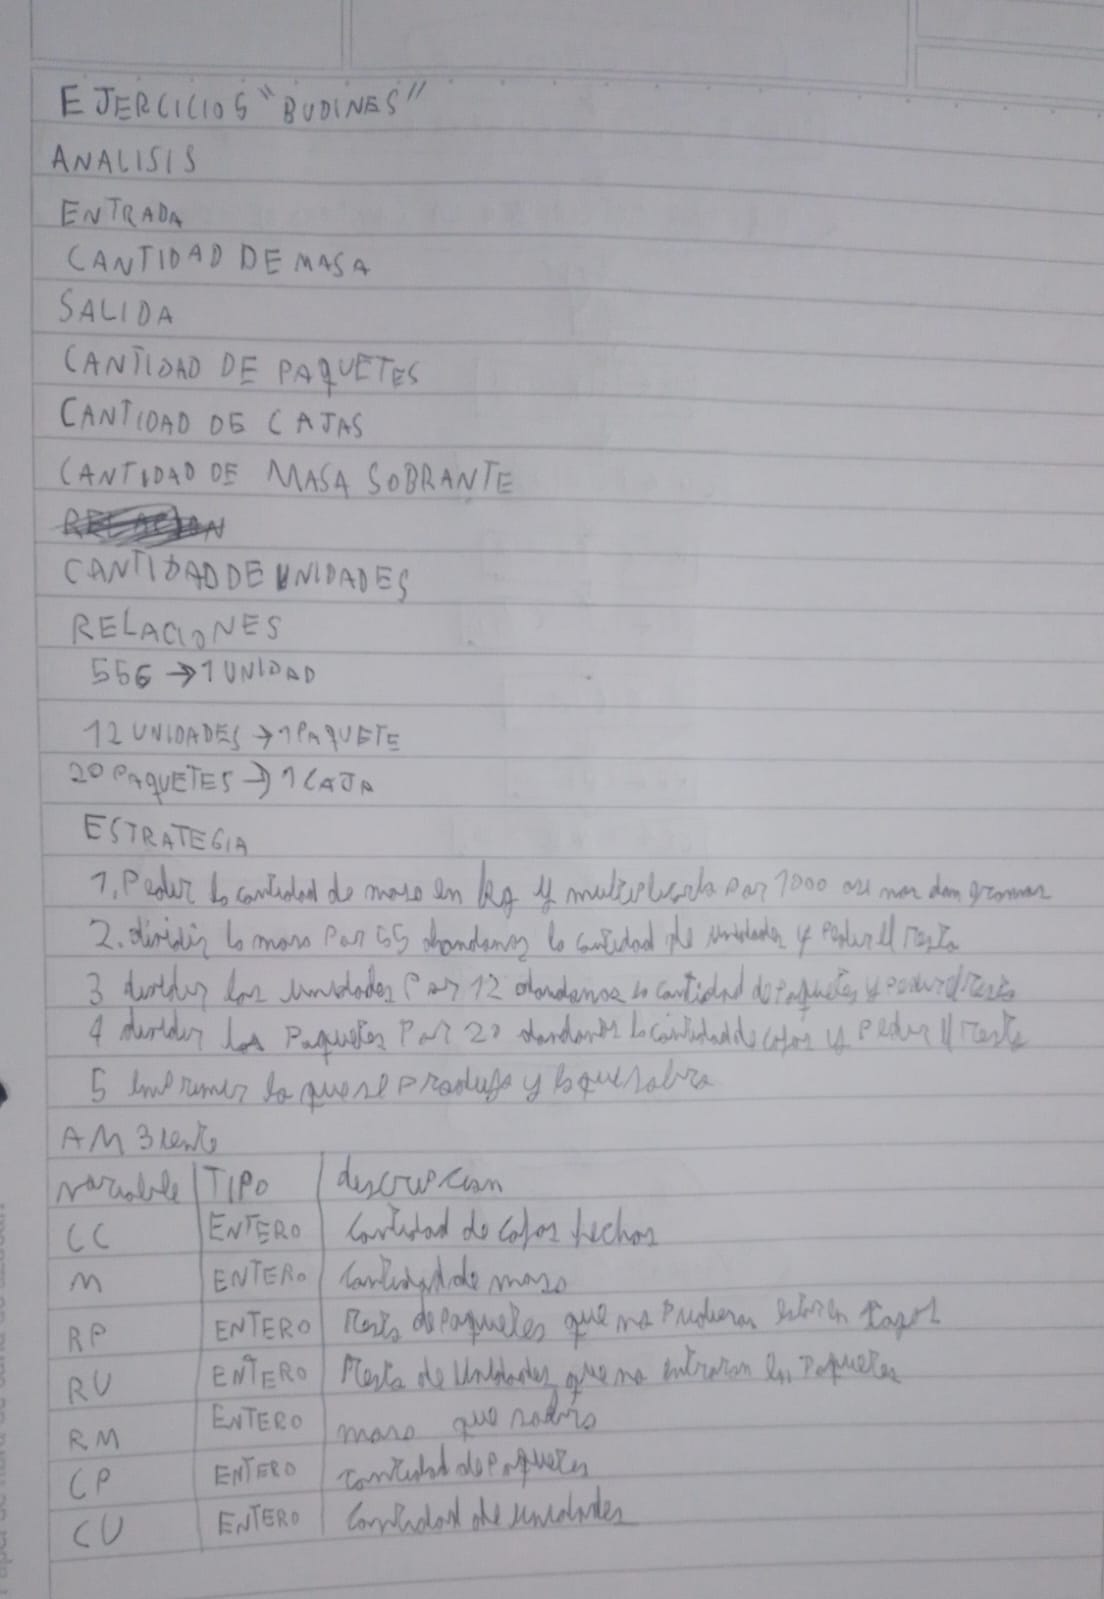 EJERCICIOS "BUDINES"
ANALISIS
ENTRADA
CANTIDAD DE MASA
SALIDA
CANTIDAD DE PAQUETES
CANTIDAD DE CAJAS
CANTIDAD DE MASA SOBRANTE
RELACION
CANTIDAD DE UNIDADES
RELACIONES
55G → 1 UNIDAD
12 UNIDADES → 1 PAQUETE
20 PAQUETES → 1 CAJA
ESTRATEGIA
1. Pedir la cantidad de masa en kg y multiplicarla por 1000 asi nos dan gramos
2. dividir la masa por 55 dandonos la cantidad de unidades y pedir el resto
3 dividir las unidades por 12 dandonos la cantidad de paquetes y pedir el resto
4 dividir los paquetes por 20 dandonos la cantidad de cajas y pedir el resto
5 imprimir lo que se produjo y lo que sobra
AMBiente
variable TIPO descripcion
CC ENTERO Cantidad de cajas hechas
M ENTERO Cantidad de masa
RP ENTERO Resto de paquetes que no pudieron en
RU ENTERO Resto de Unidades que no entraron en paquetes
RM ENTERO masa que sobró
CP ENTERO cantidad de paquetes
CU ENTERO Cantidad de unidades